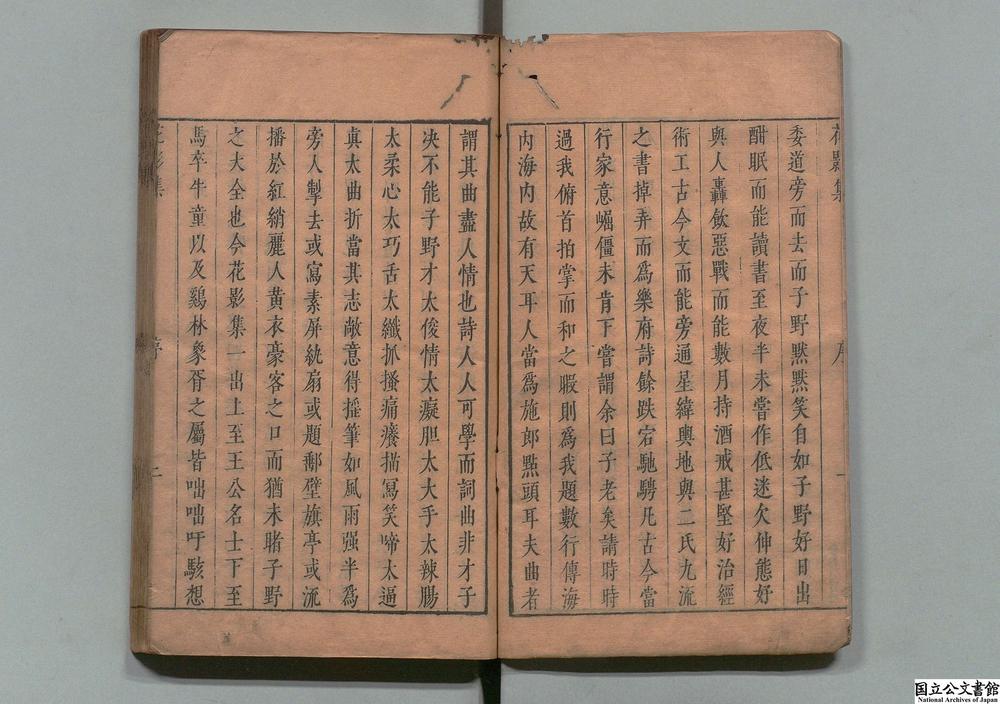 花影集
序
一
委道旁而去而子野黙黙笑自如子野好日出
酣眠而能讀書至夜半未嘗作低迷欠伸態好
與人轟飲惡戰而能數月持酒戒甚堅好治經
術工古今文而能旁通星緯輿地與二氏九流
之書掉弄而為樂府詩餘跌宕馳騁凡古今當
行家意崛僵未肯下嘗謂余曰子老矣請時時
過我俯首拍掌而和之暇則為我題數行傳海
内海内故有天耳人當為施郎點頭耳夫曲者
謂其曲盡人情也詩人人可學而詞曲非才子
决不能子野才太俊情太癡胆太大手太辣腸
太柔心太巧舌太纖抓搔痛癢描寫笑啼太逼
真太曲折當其志敞意得搖筆如風雨强半為
旁人掣去或寫素屏紈扇或題郵壁旗亭或流
播於紅綃麗人黄衣豪客之口而猶未睹子野
之大全也今花影集一出上至王公名士下至
馬卒牛童以及鷄林象胥之屬皆咄咄吁駭想
花影集
序
二
国立公文書館
National Archives of Japan